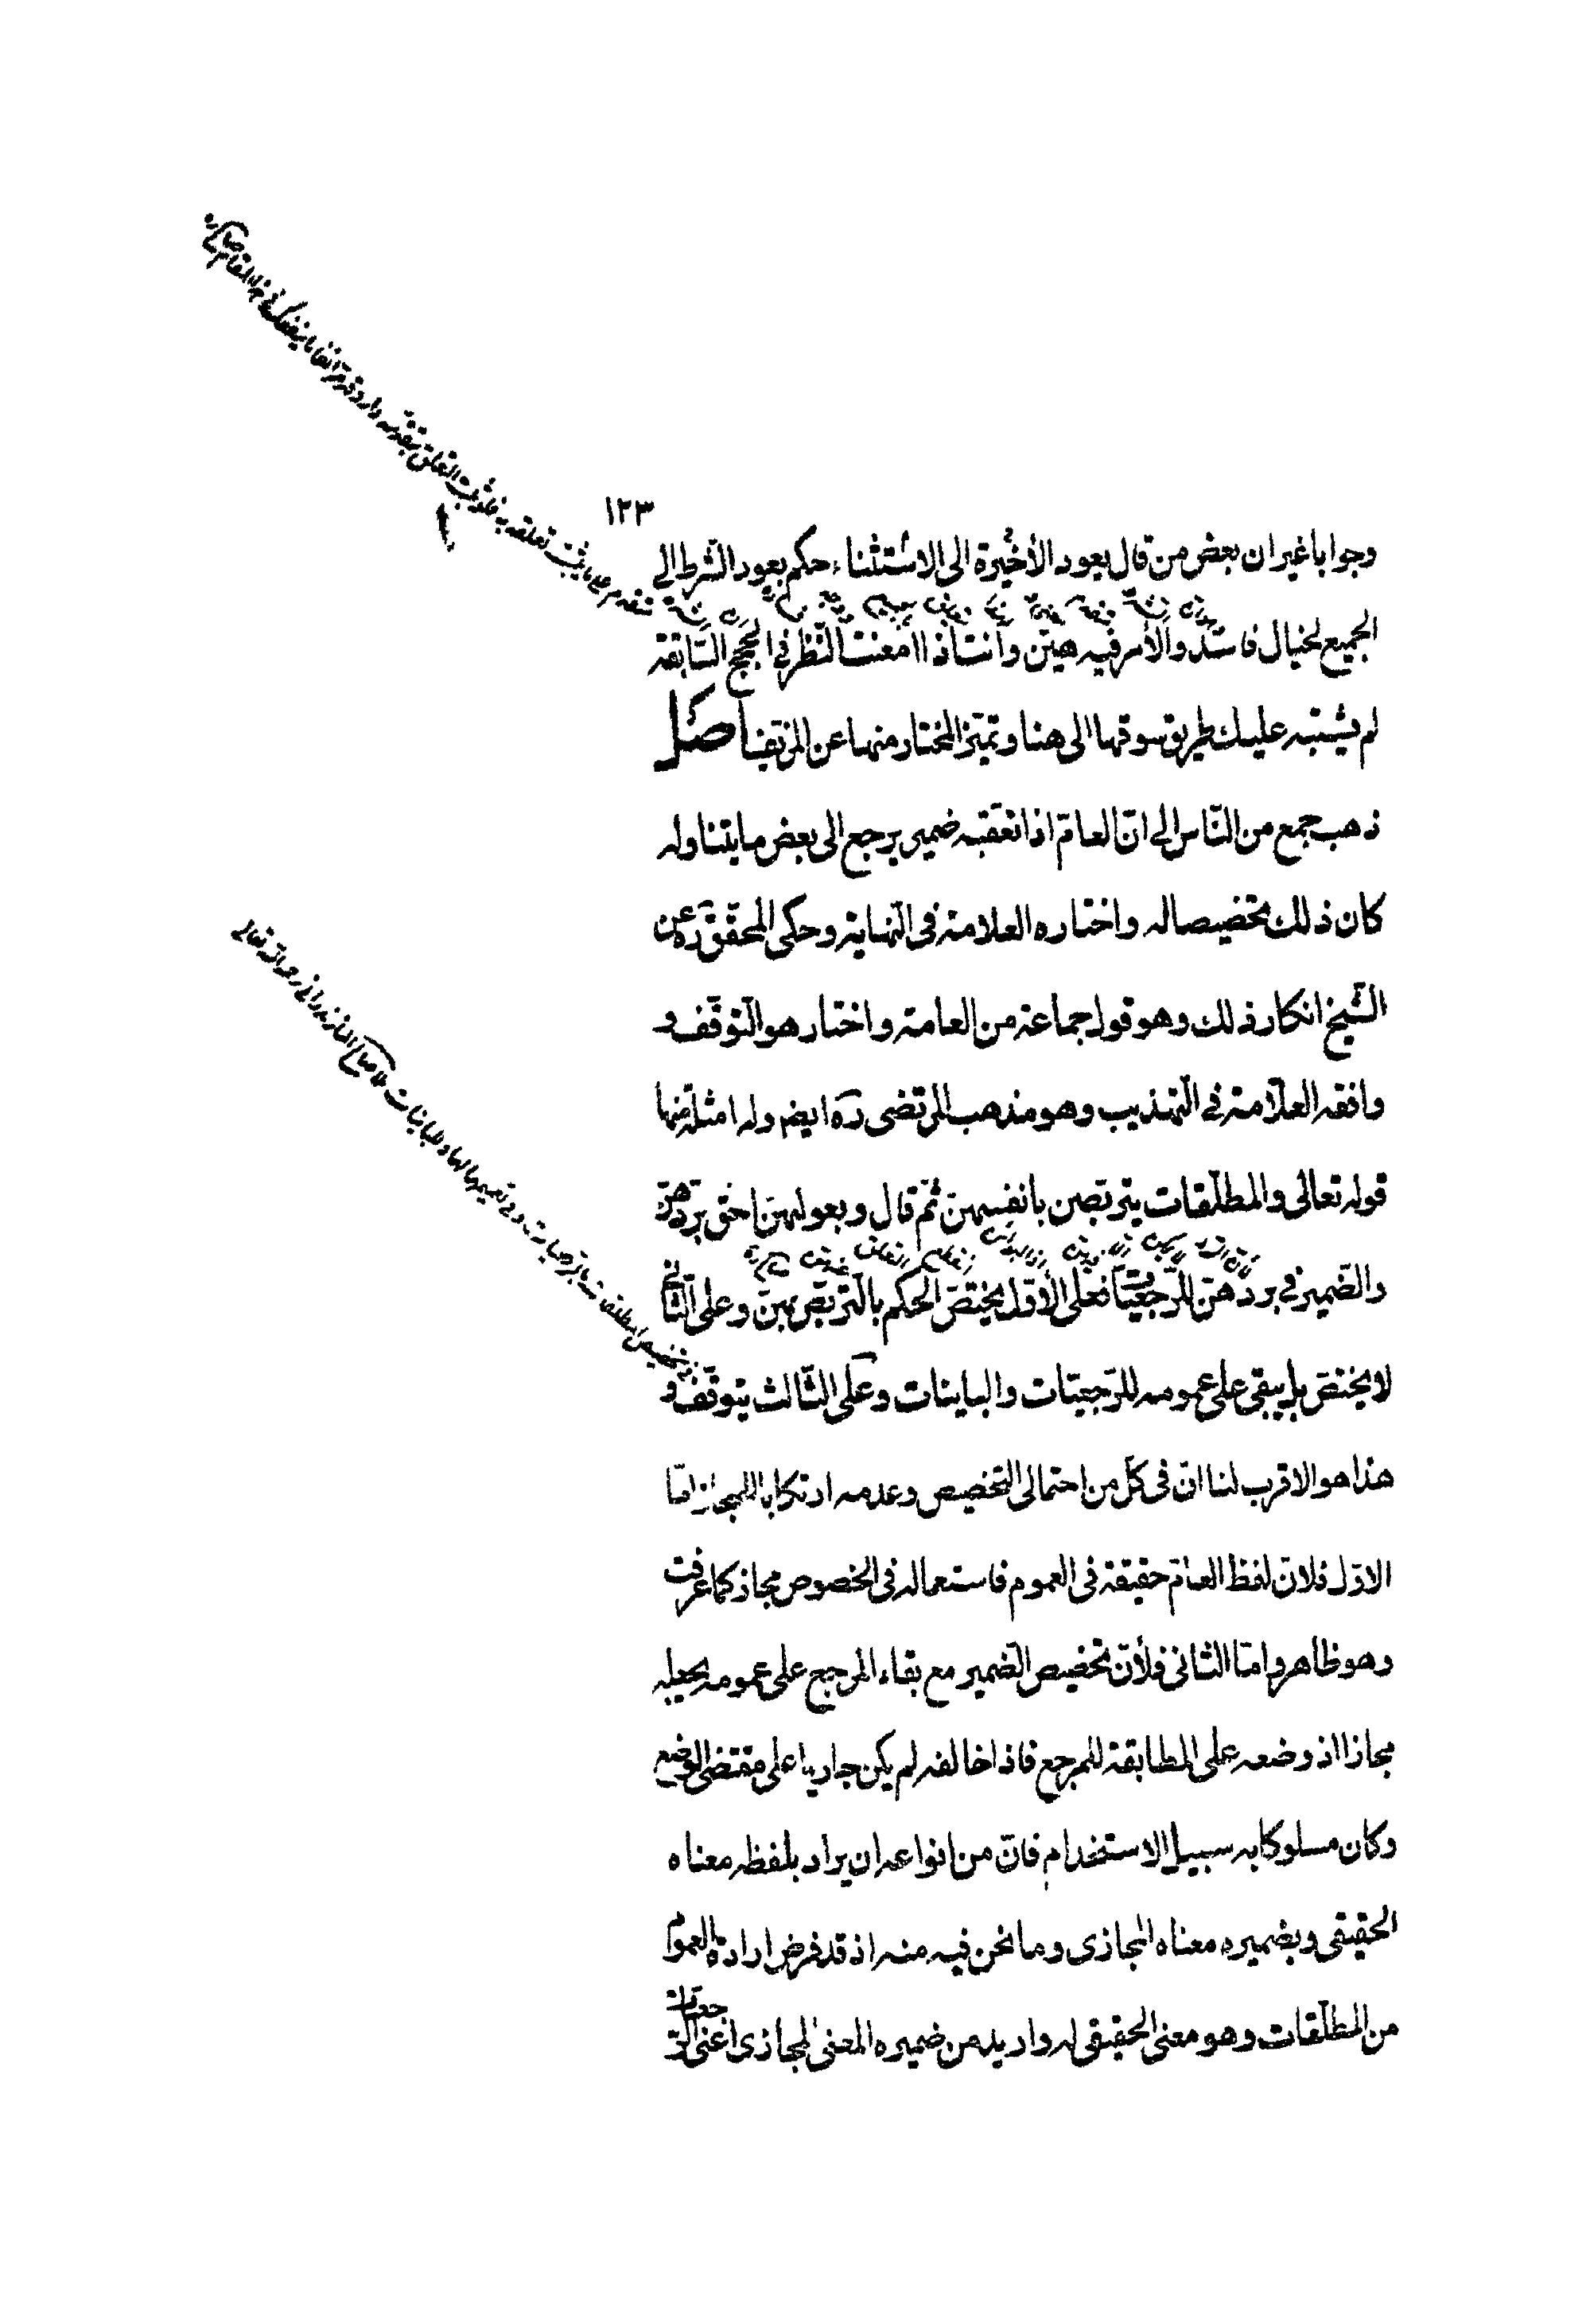 ١٢٣
وجوابا غير ان بعض من قال بعود الأخيرة الى الاستثناء حكم بعود الشرط الى
الجميع لخيال فاسد والأمر فيه هيّن وانت اذا امعنت النّظر فى الحجج السّابقة
لم يشتبه عليك طريق سوقها الى هنا وتميّز المختار منها عن المزيّف اصل
ذهب جمع من النّاس الى انّ العامّ اذا تعقّبه ضمير يرجع الى بعض ما يتناوله
كان ذلك تخصيصا له واختاره العلامة فى النّهاية وحكى المحقّق ره عن
الشّيخ انكار ذلك وهو قول جماعة من العامة واختار هو التوقّف و
وافقه العلّامة فى التهذيب وهو مذهب المرتضى ره ايضم وله امثلة منها
قوله تعالى والمطلّقات يتربّصن بانفسهنّ ثمّ قال وبعولتهنّ احقّ بردّهنّ
والضّمير فى بردّهنّ للرّجعيّات فعلى الأوّل يختصّ الحكم بالتّربّص بهنّ وعلى الثّانى
لا يختصّ بل يبقى على عمومه للرّجعيّات والباينات وعلى الثّالث يتوقّف و
هذا هو الاقرب لنا انّ فى كلّ من احتمالى التّخصيص وعدمه ارتكابا للمجاز امّا
الاوّل فلانّ لفظ العامّ حقيقة فى العموم فاستعماله فى الخصوص مجاز كما عرفت
وهو ظاهر وامّا الثانى فلأنّ تخصيص الضّمير مع بقاء المرجع على عمومه يجعله
مجازا اذ وضعه على المطابقة للمرجع فاذا خالفه لم يكن جاريا على مقتضى الوضع
وكان مسلوكا به سبيل الاستخدام فانّ من انواعه ان يراد بلفظه معناه
الحقيقى وبضميره معناه المجازى وما نحن فيه منه اذ قد فرض ارادة العموم
من المطلّقات وهو معنى الحقيقى له واريد من ضميره المعنى المجازى اعنى الرّجعيّات